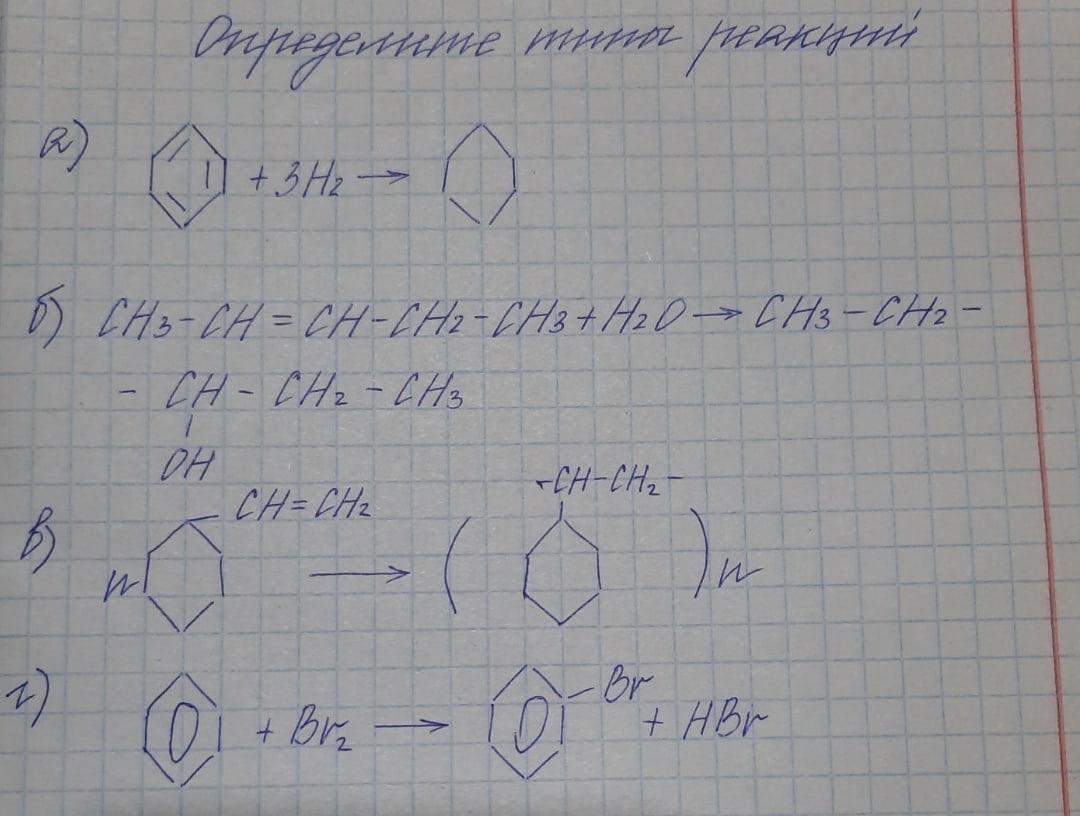 Определите типы реакций
а) + 3H₂ →
б) CH₃ – CH = CH – CH₂ – CH₃ + H₂O → CH₃ – CH₂ –
– CH – CH₂ – CH₃
OH
CH = CH₂ -CH-CH₂-
в) n → ( )n
г) + Br₂ → Br + HBr